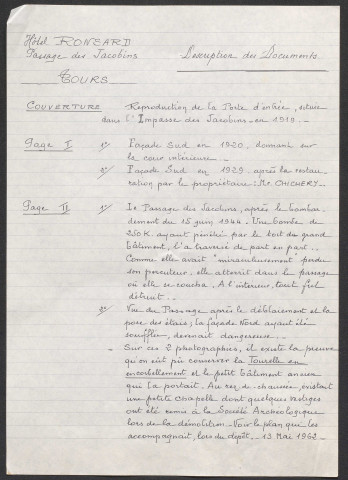 Hôtel RONSARD
Passage des Jacobins
Description des Documents
TOURS
COUVERTURE Reproduction de la Porte d'entrée, située
dans l'Impasse des Jacobins en 1919 --
Page I 1°/ Façade Sud en 1920, donnant sur
la cour intérieure --
2°/ Façade Sud en 1929, après la restau-
ration par le propriétaire : Mr. CHICHERY.
Page II 1°/ Le Passage des Jacobins, après le bombar-
dement du 15 juin 1944. Une bombe de
250 K. ayant pénétré par le toit du grand
bâtiment, l'a traversé de part en part --
Comme elle avait "miraculeusement" perdu
son percuteur, elle atterrit dans le passage
où elle se coucha. A l'intérieur, tout fut
détruit --
2°/ Vue du Passage après le déblaiement et la
pose des étais ; la façade Nord ayant été
soufflée, devenait dangereuse --
Sur ces 2 photographies, il existe la preuve
qu'on eût pu conserver la Tourelle en
encorbellement et le petit bâtiment annexe
qui la portait. Au rez-de-chaussée, existait
une petite chapelle dont quelques vestiges
ont été remis à la Société Archéologique
lors de la démolition - Voir le plan que les
accompagnait, lors du dépôt - 13 Mai 1962 -